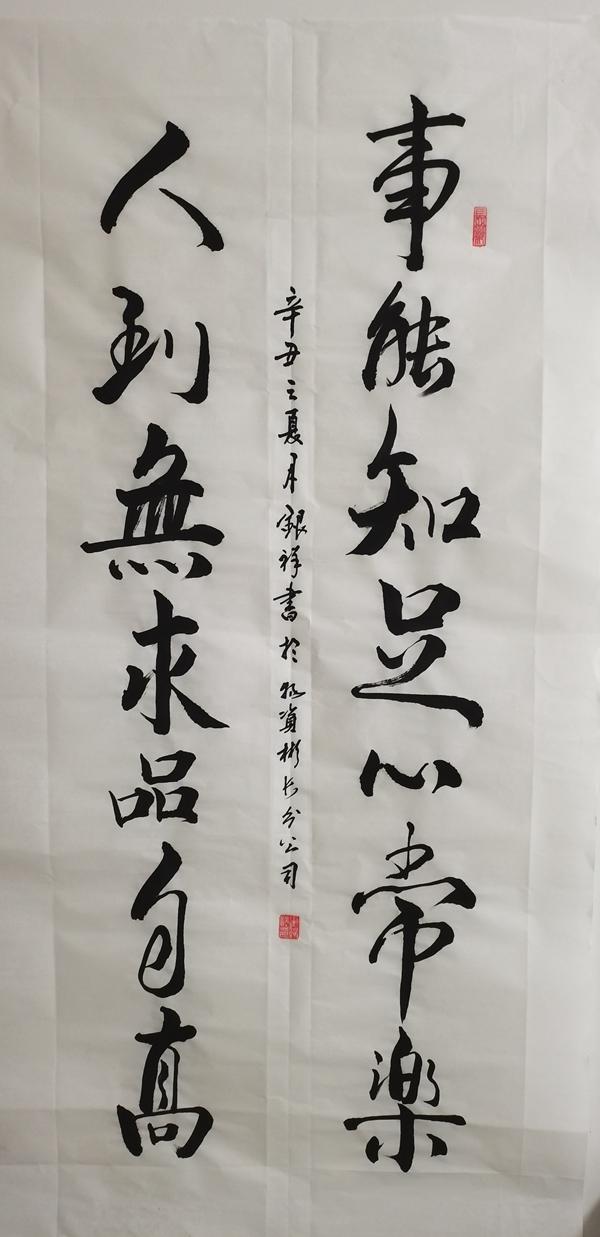 事能知足心常樂
人到無求品自高
辛丑之夏月銀祥書於物資彬长分公司